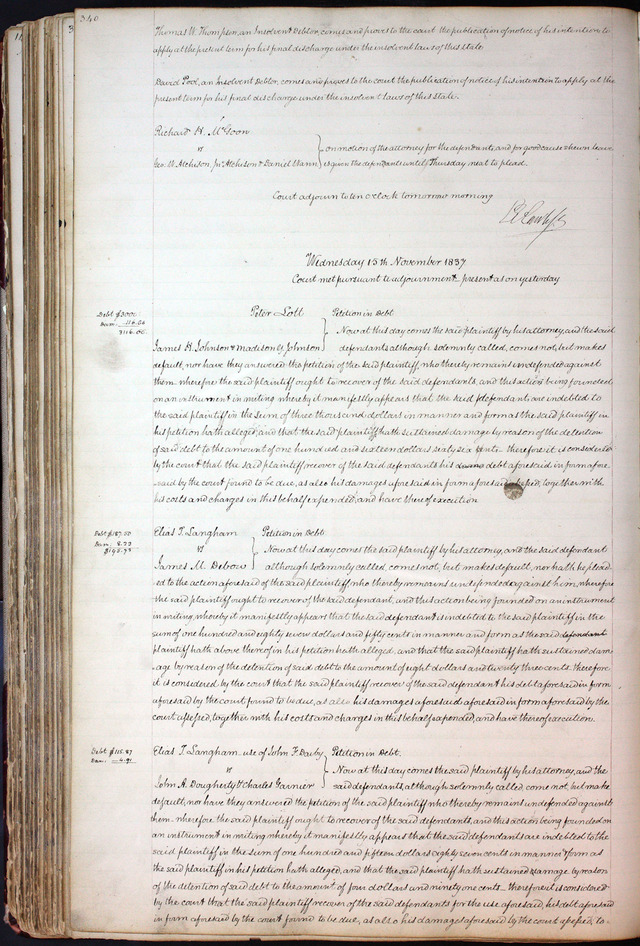 340
Thomas W. Thompson, an Insolvent Debtor, comes and proves to the court the publication of notice of his intention to
apply at the present term for his final discharge under the insolvent laws of this state.
David Pool, an Insolvent Debtor, comes and proves to the court the publication of notice of his intention to apply at the
present term for his final discharge under the insolvent laws of this state.
Richard H. McGoon
vs
on motion of the attorney for the defendants, and for good cause shewn leave
Geo. W. Atchison, Atchison & Daniel
is given the defendants until Thursday next to plead.
Court adjourn to ten o'clock tomorrow morning
Wednesday 15th November 1837
Court met pursuant to adjournment present as on yesterday
Debt $3000
Dam. 116.66
3116.66
Peter Lott
Petition in Debt
vs
Now at this day comes the said plaintiff by his attorney, and the said
James H. Johnson & Madison Y. Johnson
defendants although solemnly called, comes not, but makes
default, nor have they answered the petition of the said plaintiff, who thereby remains undefended against
them. wherefore the said plaintiff ought to recover of the said defendants, and this action being founded
on an instrument in writing whereby it manifestly appears that the said defendants are indebted to
the said plaintiff in the Sum of three thousand dollars in manner and form as the said plaintiff in
his petition hath alleged, and that the said plaintiff hath sustained damage by reason of the detention
of said debt to the amount of one hundred and sixteen dollars sixty six cents therefore it is considered
by the court that the said plaintiff recover of the said defendants his debt aforesaid in form afore
said by the court found to be due, as also his damages aforesaid in form aforesaid assessed, together with
his costs and charges in this behalf expended, and have thereof execution.
Debt $187.50
Dam. 8.23
$195.73
Elias T. Langham
Petition in Debt
vs
Now at this day comes the said plaintiff by his attorney, and the said defendant
James M. Debow
although solemnly called, comes not, but makes default, nor hath he plead
ed to the action aforesaid of the said plaintiff who thereby remains undefended against him, wherefore
the said plaintiff ought to recover of the said defendant, and this action being founded on an instrument
in writing, whereby it manifestly appears that the said defendant is indebted to the said plaintiff in the
sum of one hundred and eighty seven dollars and fifty cents in manner and form as the said defendant
plaintiff hath above thereof in his petition hath alleged, and that the said plaintiff hath sustained dam-
age by reason of the detention of said debt to the amount of eight dollars and twenty three cents. therefore
it is considered by the court that the said plaintiff recover of the said defendant his debt aforesaid in form
aforesaid by the court found to be due, as also his damages aforesaid aforesaid in form aforesaid by the
court assessed, together with his costs and charges in this behalf expended, and have thereof execution.
Debt $115.87
Dam. 4.91
Elias T. Langham use of John F. Darby
Petition in Debt.
vs
Now at this day comes the said plaintiff by his attorney, and the
John A. Dougherty & Charles Garnier
said defendants, although solemnly called come not, but make
default, nor have they answered the petition of the said plaintiff who thereby remains undefended against
them. wherefore the said plaintiff ought to recover of the said defendants, and this action being founded on
an instrument in writing whereby it manifestly appears that the said defendants are indebted to the
said plaintiff in the sum of one hundred and fifteen dollars eighty seven cents in manner & form as
the said plaintiff in his petition hath alleged, and that the said plaintiff hath sustained damage by reason
of the detention of said debt to the amount of four dollars and ninety one cents. therefore it is considered
by the court that the said plaintiff recover of the said defendants for the use aforesaid, his debt aforesaid
in form aforesaid by the court found to be due, as also his damages aforesaid by the court assessed, to-